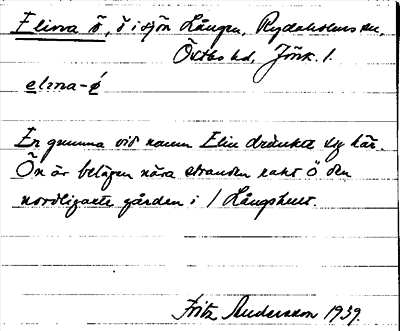 Elinra ö, ö i sjön Lången, Rydaholms sn,
Östbo hd, Jönk. l.
elnra-ǿ
En gumma vid namn Elin dränkte sig här.
Ön är belägen nära stranden rakt ö den
nordligaste gården i / Långshult.
Fritz Andersson 1939.